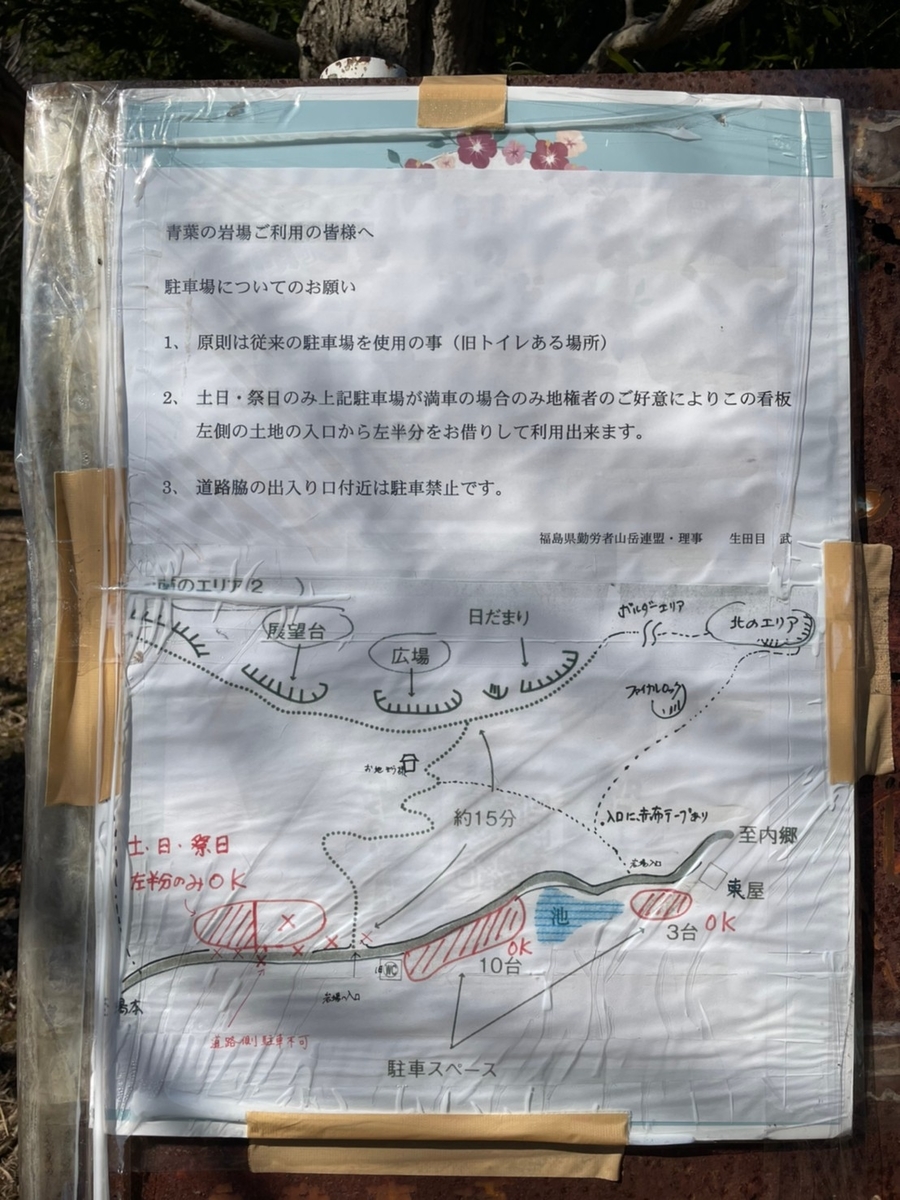 青葉の岩場ご利用の皆様へ
駐車場についてのお願い
1、 原則は従来の駐車場を使用の事（旧トイレある場所）
2、 土日・祭日のみ上記駐車場が満車の場合のみ地権者のご好意によりこの看板
左側の土地の入口から左半分をお借りして利用出来ます。
3、 道路脇の出入り口付近は駐車禁止です。
福島県勤労者山岳連盟・理事　生田目　武
のエリア(2　)
展望台
広場
日だまり
ボルダーエリア
北のエリア
ファイナルロック
お地ぞう様
約15分
入口に赤布テープあり
至内郷
土・日・祭日
左半分のみOK
岩場入口
東屋
池
3台 OK
旧WC
OK
10台
岩場へ入口
道路側駐車不可
駐車スペース